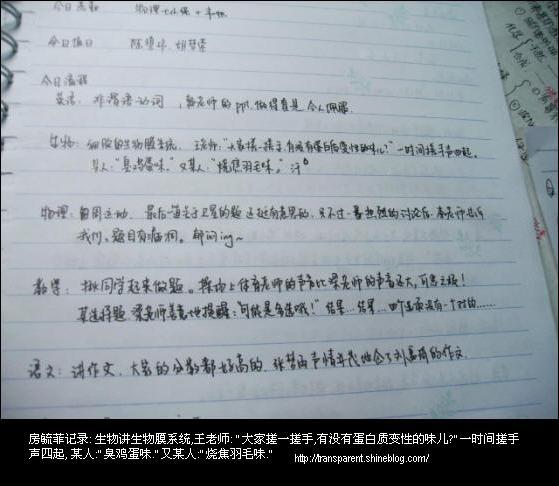 今日点歌 物理
今日值日
今日课程
英语: 非谓语动词, 老师的ppt做得真是令人佩服.
生物: 细胞的生物膜系统. 王老师:"大家搓一搓手,有没有蛋白质变性的味儿?"一时间搓手声四起.
某人:"臭鸡蛋味."又某人:"烧焦羽毛味."汗
物理: 圆周运动. 最后一道关于卫星的题还挺有意思的. 只不过一番热烈的讨论后. 老师告诉
我们. 题目有漏洞. 郁闷ing~
数学: 揪同学起来做题. 操场上体育老师的声音比老师的声音还大, 可恶之极!
某选择题. 老师善意地提醒:"可能是多选哦!"结果...结果...四个选项没有一个对的......
语文: 讲作文. 大家的分数都好高的. 张梦雨声情并茂地念了的作文.
房毓菲记录: 生物讲生物膜系统,王老师: "大家搓一搓手,有没有蛋白质变性的味儿?"一时间搓手
声四起, 某人:"臭鸡蛋味."又某人:"烧焦羽毛味."
http://transparent.shineblog.com/